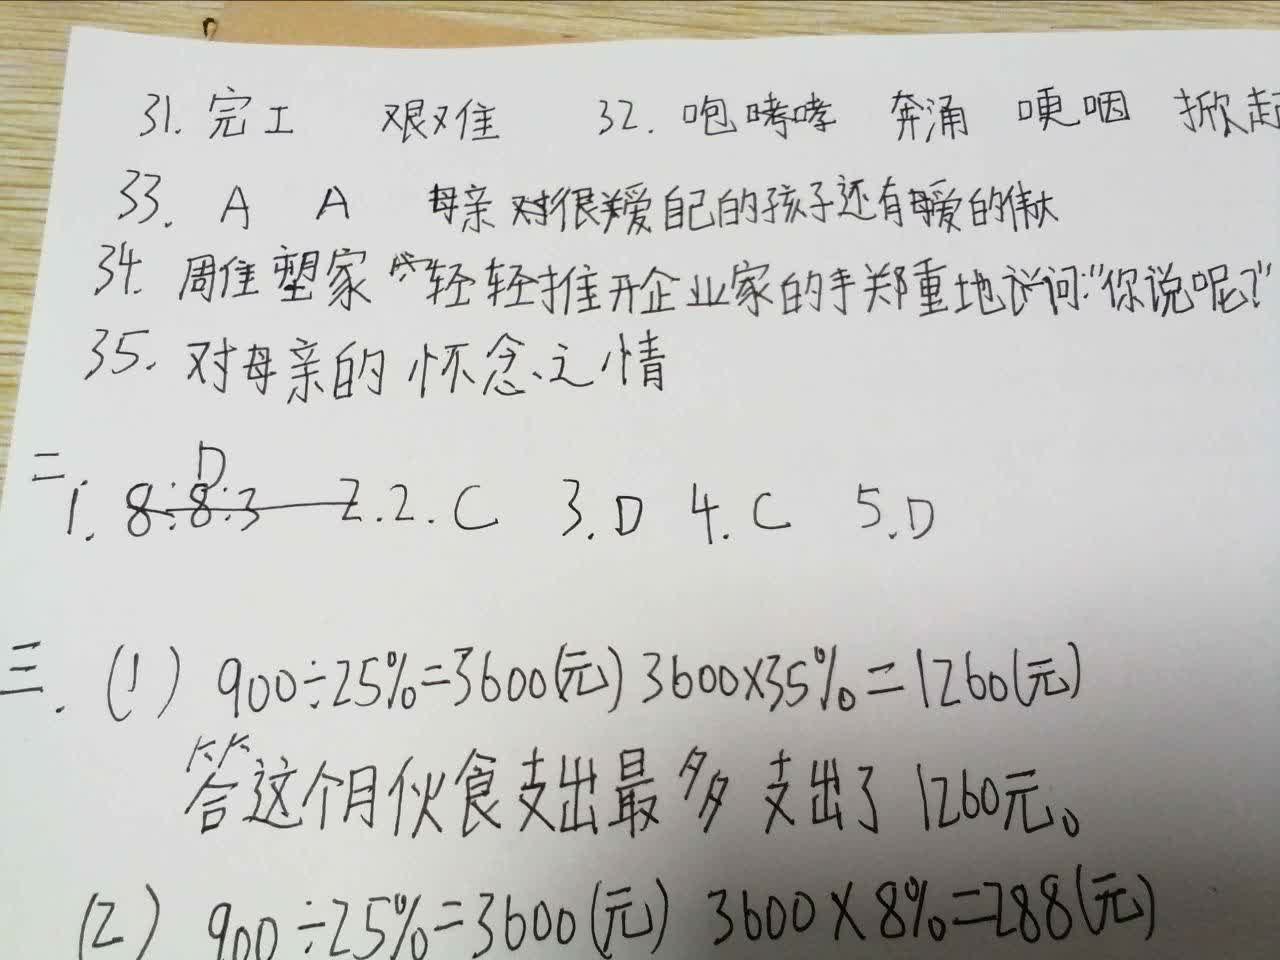 31. 完工 艰难 32. 咆哮哮 奔涌 哽咽 掀起
33. A A 母亲对很关爱自己的孩子还有母爱的伟大
34. 周佳 塑家 轻轻推开企业家的手郑重地说问:"你说呢?"
35. 对母亲的怀念之情
二
D
1. 8:8:3 2.2.C 3.D 4.C 5.D
三.(1) 900÷25%=3600(元) 3600×35%=1260(元)
答这个月伙食支出最多 支出了1260元。
(2) 900÷25%=3600(元) 3600×8%=288(元)